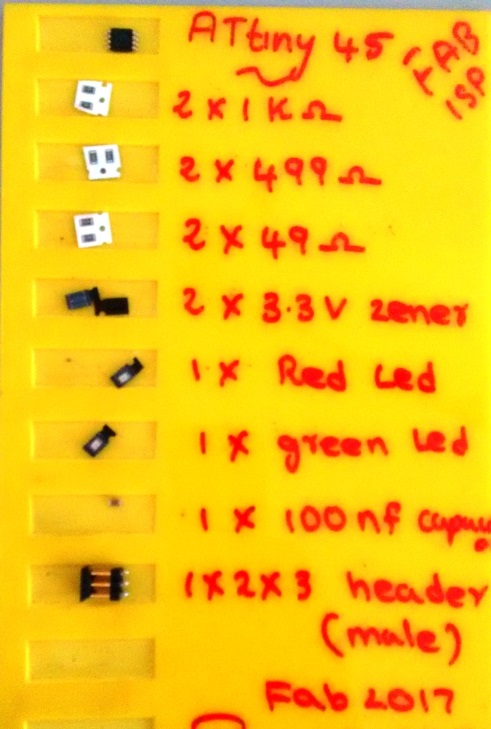 ATtiny 45
FAB
ISP
2 X 1 KΩ
2 X 499 Ω
2 X 49 Ω
2 X 3.3 V zener
1 X Red Led
1 X green Led
1 X 100 nf
1 X 2 X 3 header
(male)
Fab 2017